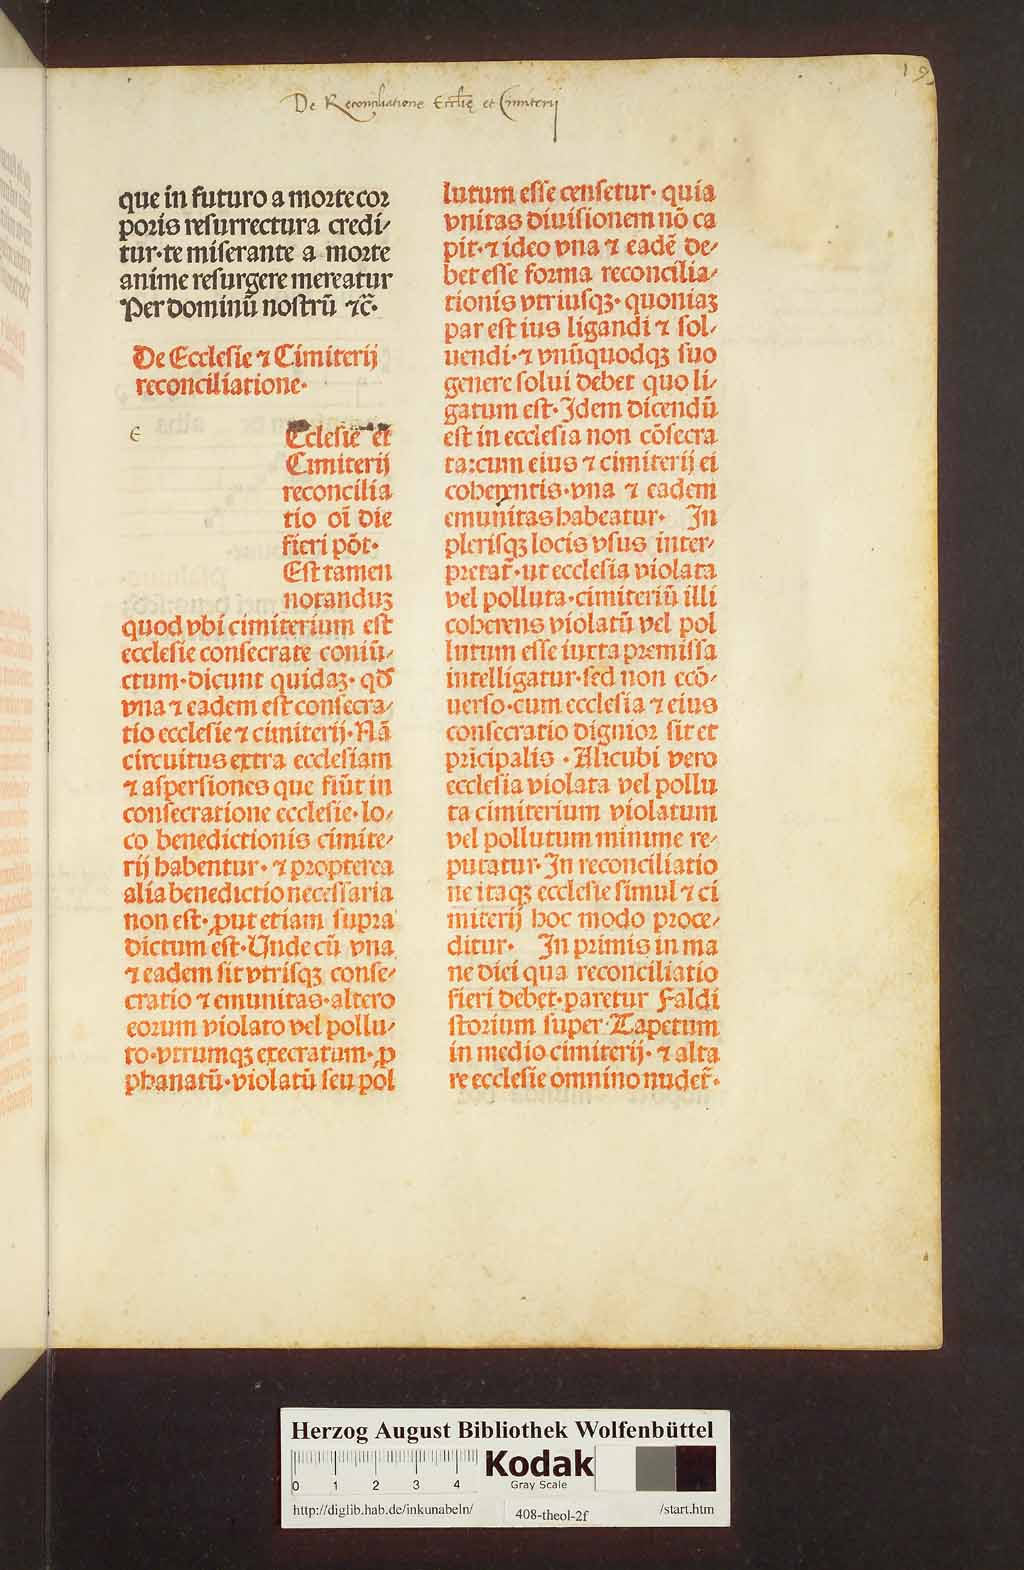 De Reconciliatione Eccl̄ię et Cimiterij
19
que in futuro a morte cor
poris resurrectura credi⸗
tur·te miserante a morte
anime resurgere mereatur
Per dominū nostrū ⁊c̄·
De Ecclesie ⁊ Cimiterij
reconciliatione·
E
Cclesie et
Cimiterij
reconcilia
tio oī die
fieri pōt·
Est tamen
notanduꝫ
quod vbi cimiterium est
ecclesie consecrate coniū⸗
ctum·dicunt quidaꝫ· qd̄
vna ⁊ eadem est consecra⸗
tio ecclesie ⁊ cimiterij·Nā
circuitus extra ecclesiam
⁊ aspersiones que fiūt in
consecratione ecclesie·lo⸗
co benedictionis cimite⸗
rij habentur· ⁊ propterea
alia benedictio necessaria
non est·ꝓut etiam supra
dictum est·Unde cū vna
⁊ eadem sit vtrisqꝫ conse⸗
cratio ⁊ emunitas·altero
eorum violato vel pollu⸗
to·vtrumqꝫ execratum·ꝓ
phanatū·violatū seu pol
lutum esse censetur· quia
vnitas diuisionem nō ca
pit·⁊ ideo vna ⁊ eadē de⸗
bet esse forma reconcilia⸗
tionis vtriusqꝫ· quoniaꝫ
par est ius ligandi ⁊ sol⸗
uendi·⁊ vnūquodqꝫ suo
genere solui debet quo li⸗
gatum est·Idem dicendū
est in ecclesia non cōsecra
ta:cum eius ⁊ cimiterij ei
coherentis·vna ⁊ eadem
emunitas habeatur· In
plerisqꝫ locis vsus inter⸗
pretat̄·ut ecclesia violata
vel polluta·cimiteriū illi
coherens violatū vel pol
lutum esse iuxta premissa
intelligatur·sed non ecō⸗
uerso·cum ecclesia ⁊ eius
consecratio dignior sit et
pricipalis ·Alicubi vero
ecclesia violata vel pollu
ta cimiterium violatum
vel pollutum minime re⸗
putatur·In reconciliatio
ne itaqꝫ ecclesie simul ⁊ ci
miterij hoc modo proce⸗
ditur· In primis in ma
ne diei qua reconciliatio
fieri debet·paretur Faldi
storium super Tapetum
in medio cimiterij· ⁊ alta
re ecclesie omnino nudet̄·
Herzog August Bibliothek Wolfenbüttel
0 1 2 3 4
Kodak
Gray Scale
http://diglib.hab.de/inkunabeln/ 408-theol-2f /start.htm